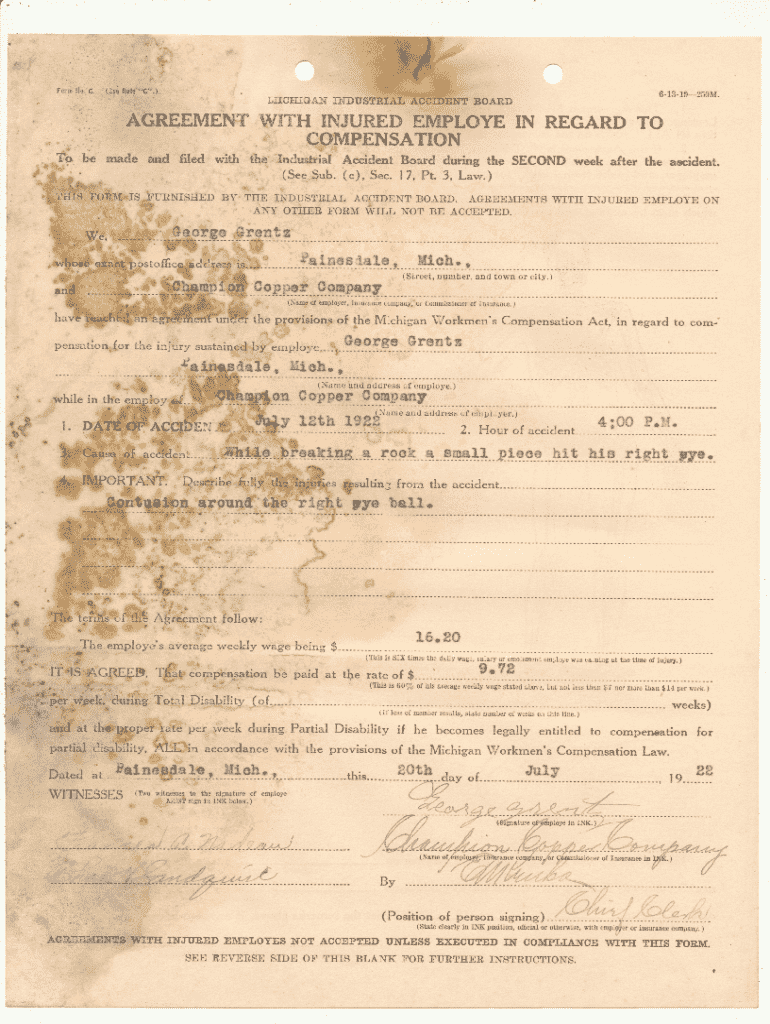 Form No. C. (See Rule "C".)
6-13-19—255M.
MICHIGAN INDUSTRIAL ACCIDENT BOARD
AGREEMENT WITH INJURED EMPLOYE IN REGARD TO
COMPENSATION
To be made and filed with the Industrial Accident Board during the SECOND week after the accident.
(See Sub. (c), Sec. 17, Pt. 3, Law.)
THIS FORM IS FURNISHED BY THE INDUSTRIAL ACCIDENT BOARD. AGREEMENTS WITH INJURED EMPLOYE ON
ANY OTHER FORM WILL NOT BE ACCEPTED.
We, George Grentz
whose exact postoffice address is Painesdale, Mich.,
(Street, number, and town or city.)
and Champion Copper Company
(Name of employer, insurance company, or Commissioner of Insurance.)
have reached an agreement under the provisions of the Michigan Workmen's Compensation Act, in regard to com-
pensation for the injury sustained by employe, George Grentz
Painesdale, Mich.,
(Name and address of employe.)
while in the employ of Champion Copper Company
(Name and address of employer.)
1. DATE OF ACCIDENT July 12th 1922 2. Hour of accident 4;00 P.M.
3. Cause of accident While breaking a rock a small piece hit his right eye.
4. IMPORTANT. Describe fully the injuries resulting from the accident
Contusion around the right eye ball.
The terms of the Agreement follow:
The employe's average weekly wage being $ 16.20
(This is SIX times the daily wage, salary or emolument employe was earning at the time of injury.)
IT IS AGREED, That compensation be paid at the rate of $ 9.72
(This is 60% of his average weekly wage stated above, but not less than $7 nor more than $14 per week.)
per week, during Total Disability (of weeks)
(If loss of member results, state number of weeks on this line.)
and at the proper rate per week during Partial Disability if he becomes legally entitled to compensation for
partial disability. ALL in accordance with the provisions of the Michigan Workmen's Compensation Law.
Dated at Painesdale, Mich., this 20th day of July, 19 22
WITNESSES (Two witnesses to the signature of employe
MUST sign in INK below.)
George Grentz
(Signature of employe in INK.)
Champion Copper Company
(Name of employer, insurance company, or Commissioner of Insurance in INK.)
Sandquist
By
(Position of person signing) Chief Clerk
(State clearly in INK position, official or otherwise, with employer or insurance company.)
AGREEMENTS WITH INJURED EMPLOYES NOT ACCEPTED UNLESS EXECUTED IN COMPLIANCE WITH THIS FORM.
SEE REVERSE SIDE OF THIS BLANK FOR FURTHER INSTRUCTIONS.